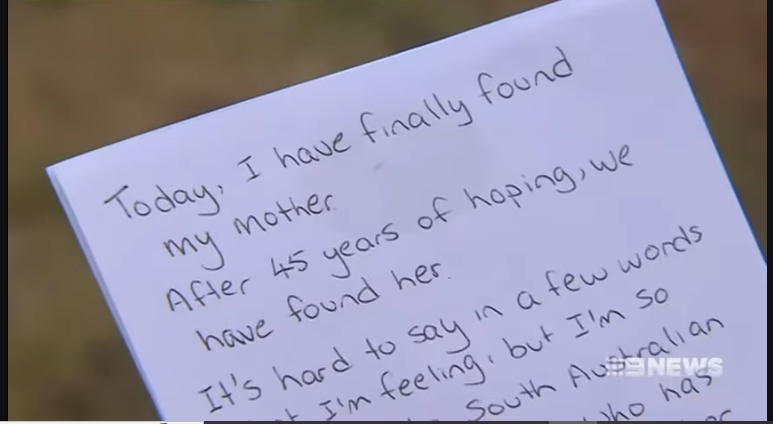 Today, I have finally found
my mother.
After 45 years of hoping, we
have found her.
It's hard to say in a few words
I'm feeling, but I'm so
South Australian
who has
9NEWS